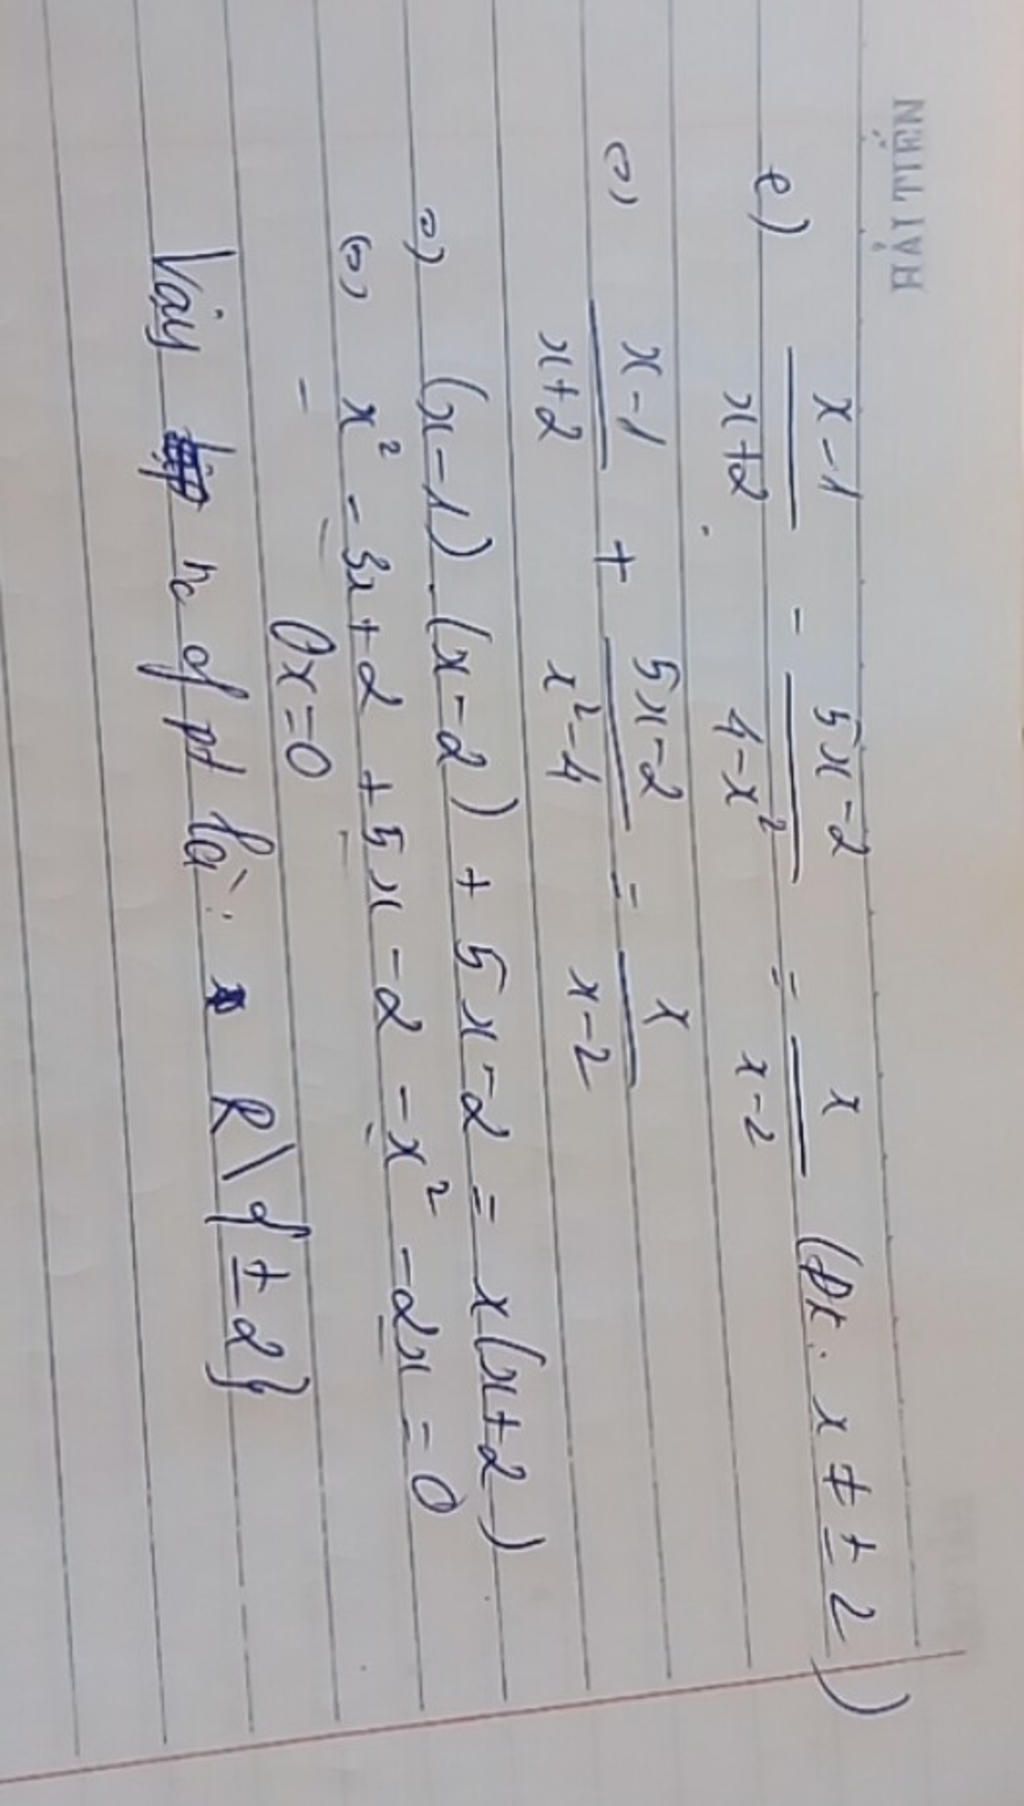 HẢI TIẾN
e) \frac{x-1}{x+2} - \frac{5x-2}{4-x^2} = \frac{x}{x-2} (Đk: x ≠ ± 2)
⇔ \frac{x-1}{x+2} + \frac{5x-2}{x^2-4} = \frac{x}{x-2}
⇔ (x-1).(x-2) + 5x-2 = x(x+2)
⇔ x² - 3x + 2 + 5x - 2 - x² - 2x = 0
0x = 0
Vậy no of pt là: R \ {± 2}